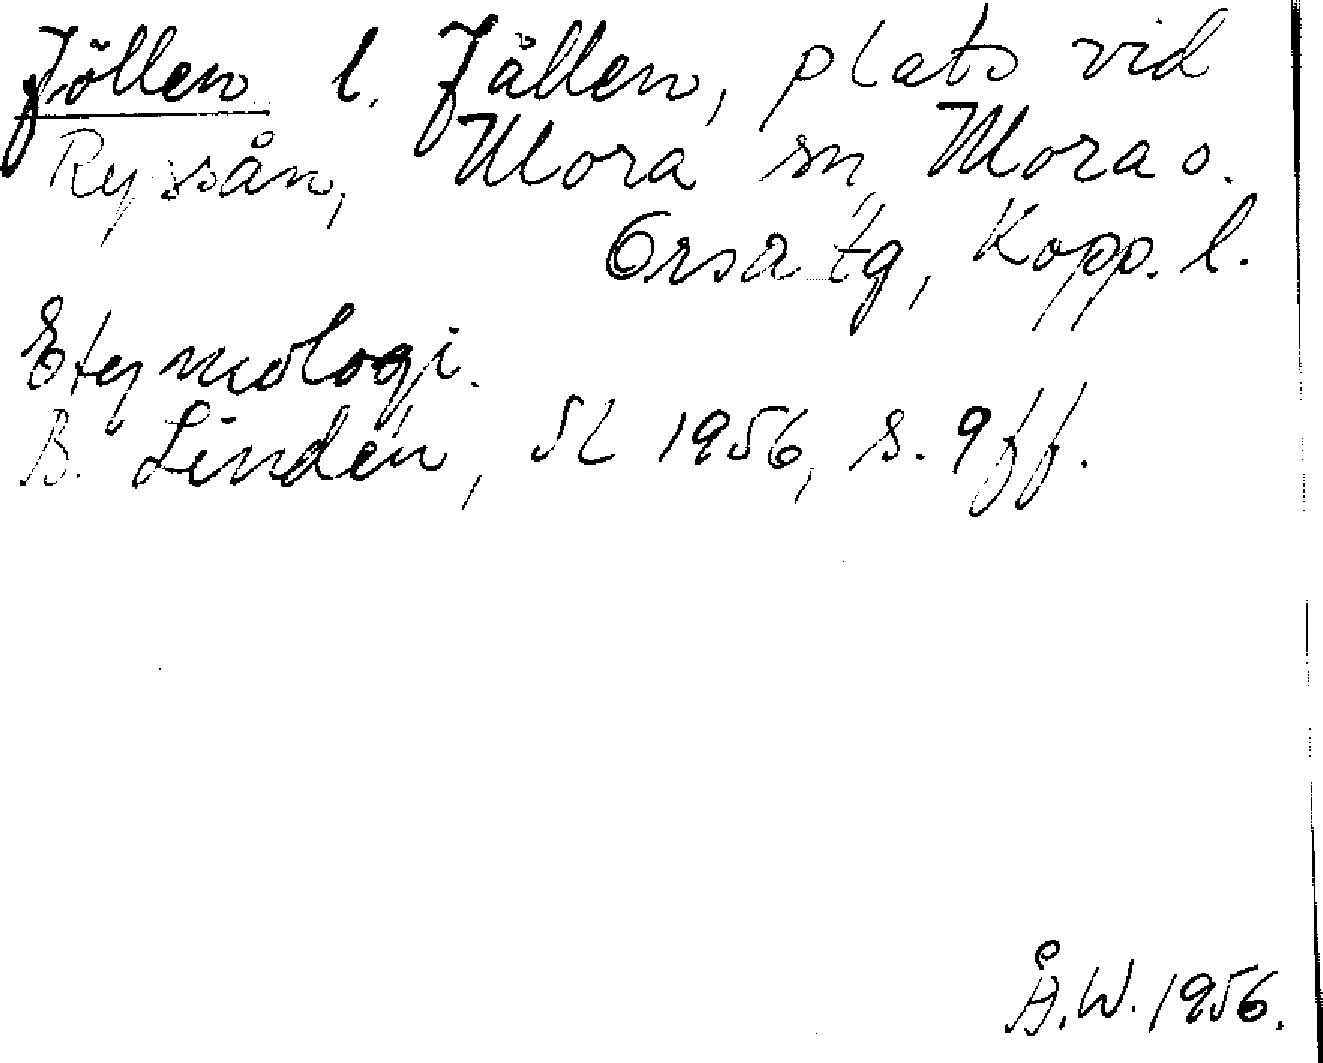 Jöllen l. Jållen, plats vid
Ryssån, Mora sn, Mora o.
Orsa tg, Kopp. l.
Etymologi.
B. Lindén, SL 1956, s. 9 ff.
Å.W. 1956.